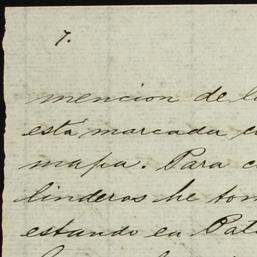 7.
mencion de l
está marcada c
mapa. Para c
linderos he tom
estando en Pat